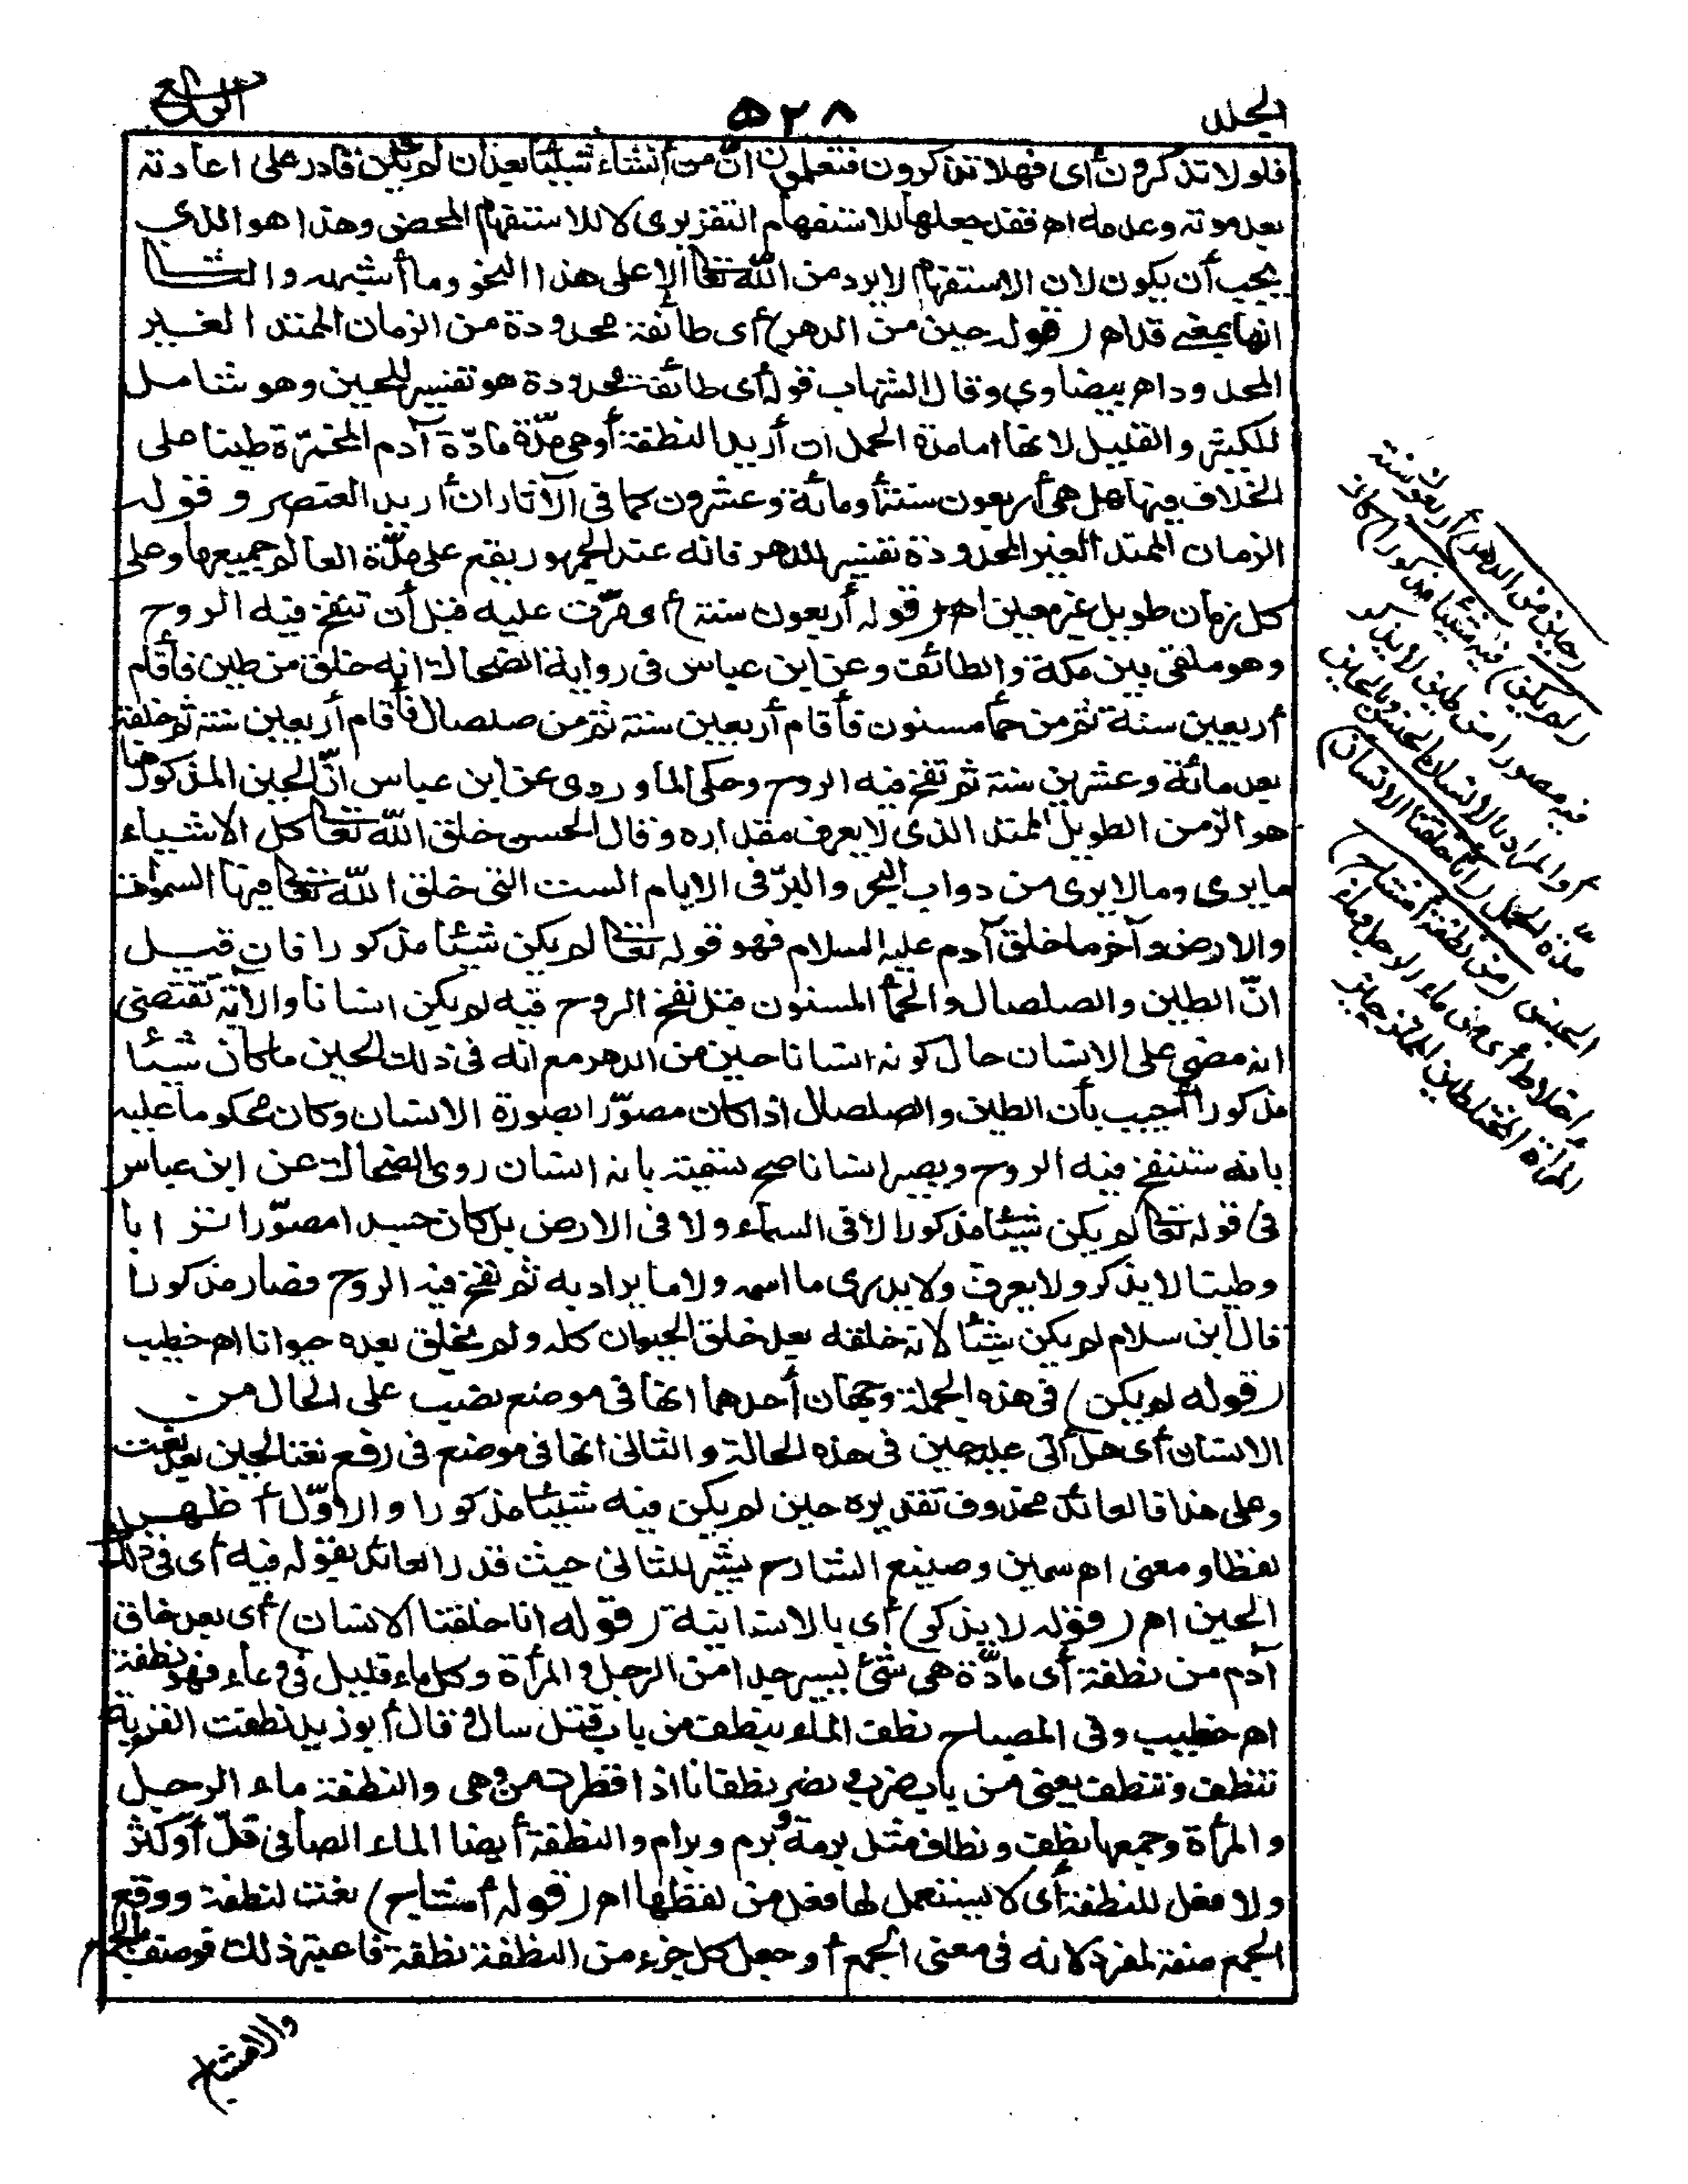 الجلد
٥٢٨
الرابع
فلولا تذكرون أى فهلا تتذكرون فتعلمون انّ من أنشاء شيئا بعد أن لم يكن قادر على اعادته
بعد موته وعدمه اه فقد جعلها للاستفهام التقريرى لا للاستفهام المحض وهذا هو الذى
يجب أن يكون لان الاستفهام لا يرد من الله تعا الا على هذا النحو وما أشبهه والثـانى
انها بمعنى قد اه (قوله حين من الدهر) أى طائفة محدودة من الزمان الممتد الغير
المحدود اه بيضاوي وقال الشهاب قوله أى طائفة محدودة هو تفسير للحين وهو شامل
للكثير والقليل لانها اما مدة الحمل ان أريد النطفة أو هى مدّة مادّة آدم المخمرّة طينا على
الخلاف فيها هل هى أربعون سنة أو مائة وعشرون كما فى الآثار ان أريد العنصر وقوله
الزمان الممتد الغير المحدودة تفسير للدهر فانه عند الجمهور يقع على مدّة العالم جميعها وعلى
كل زمان طويل غير معين اه (قوله أربعون سنة) أى مرّت عليه قبل أن تنفخ فيه الروح
وهو ملقى بين مكة والطائف وعن ابن عباس فى رواية الضحاك انه خلق من طين فأقام
أربعين سنة ثم من حمأ مسنون فأقام أربعين سنة ثم من صلصال فأقام أربعين سنة ثم خلقه
بعد مائة وعشرين سنة ثم نفخ فيه الروح وحكى الماوردى عن ابن عباس انّ الحين المذكور هنا
هو الزمن الطويل الممتد الذى لا يعرف مقداره وقال الحسن خلق الله تعا كل الاشياء
ما يرى وما لا يرى من دواب البحر والبرّ فى الايام الست التى خلق الله تعا فيها السموات
والارض وآخر ما خلق آدم عليه السلام فهو قوله تعا لم يكن شيئا مذكورا فان قيل
انّ الطين والصلصال والحمأ المسنون قبل نفخ الروح فيه لم يكن انسانا والآية تقتضى
انه مضى على الانسان حال كونه انسانا حين من الدهر مع انه فى ذلك الحين ما كان شيئا
مذكورا أجيب بأن الطين والصلصال اذا كان مصوّرا بصورة الانسان وكان محكوما عليه
بانه ستنفخ فيه الروح ويصير انسانا صح تسميته بانه انسان روى الضحاك عن ابن عباس
فى قوله تعا لم يكن شيئا مذكورا لا فى السماء ولا فى الارض بل كان جسدا مصوّرا ترابا
وطينا لا يذكر ولا يعرف ولا يدرى ما اسمه ولا ما يراد به ثم نفخ فيه الروح فصار مذكورا
قال ابن سلام لم يكن شيئا لانه خلقه بعد خلق الحيوان كله ولم يخلق بعده حيوانا اه خطيب
(قوله لم يكن) فى هذه الجملة وجهان أحدهما انها فى موضع نصب على الحال من
الانسان أى هل أتى عليه حين فى هذه الحالة والثانى انها فى موضع فى رفع نعتا لحين بعد نعت
وعلى هذا فالعائد محذوف تقديره حين لم يكن فيه شيئا مذكورا والاوّل أظهر
لفظا ومعنى اه سمين وصنيع الشارح يشير للثانى حيث قدر العائد بقوله فيه أى فى ذلك
الحين اه (قوله لا يذكر) أى بالانسانية (قوله انا خلقنا الانسان) أى بعد خلق
آدم من نطفة أى مادّة هى شئ يسير جدا من الرجل والمرأة وكل ماء قليل فى وعاء فهو نطفة
اه خطيب وفى المصباح نطف الماء ينطف من باب قتل سال قال أبو زيد نطفت القربة
تنطف وتنطف يعنى من باب ضرب ونصر نطفانا اذا قطرت من وهى والنطفة ماء الرجل
والمرأة وجمعها نطف ونطاف مثل برمة وبرم وبرام والنطفة أيضا الماء الصافى قلّ أو كثر
ولا فعل للنطفة أى لا يستعمل لها فعل من لفظها اه (قوله أمشاج) نعت لنطفة ووقع
الجمع صفة لمفرد لانه فى معنى الجمع أو جعل كل جزء من النطفة نطفة فاعتبر ذلك فوصف بالجمع
والامشاج
(حين من الدهر) أربعون سنة
(لم يكن) فيه (شيئا مذكورا) كان
فيه مصورا من طين لا يذكر
أو المراد بالانسان الجنس وبالحين
مدة الحمل (انا خلقنا الانسان)
الجنس (من نطفة أمشاج)
أخلاط أى من ماء الرجل وماء
المرأة المختلطين الممتزجين